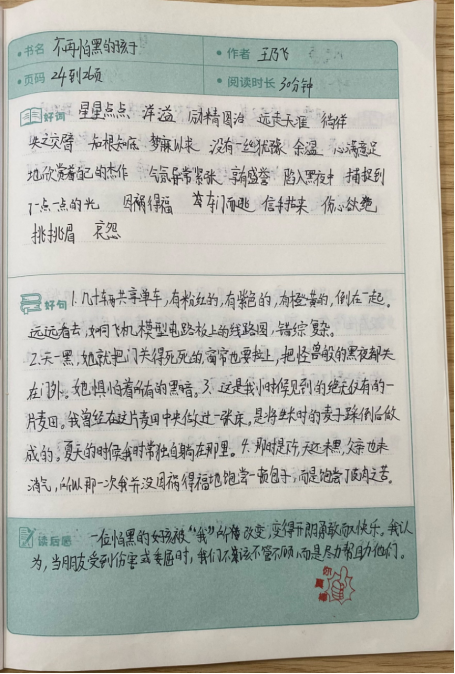 书名 不再怕黑的孩子
作者 王乃飞
页码 24到26页
阅读时长 30分钟
好词 星星点点 洋溢 励精图治 远走天涯 徜徉
失之交臂 知根知底 梦寐以求 没有一丝犹豫 余温 心满意足
地欣赏着自己的杰作 气氛异常紧张 享有盛誉 陷入黑夜中 捕捉到
了一点一点的光 因祸得福 夺门而逃 信手拈来 伤心欲绝
挑挑眉 哀怨
好句 1.几十辆共享单车,有粉红的,有紫色的,有橙黄的,倒在一起。
远远看去,如同飞机模型电路板上的线路图,错综复杂。
2.天一黑,她就把门关得死死的,窗帘也要拉上,把怪兽般的黑夜都关
在门外。她惧怕着所有的黑暗。3.这是我小时候见到的绝无仅有的一
片麦田。我曾经在这片麦田中央做过一张床,是将丛时的麦子踩倒后做
成的。夏天的时候我时常独自躺在那里。4.那时提防,天还未黑,父亲也未
消气,所以那一次我并没因祸得福地饱尝一顿包子,而是饱尝了皮肉之苦。
读后感 一位怕黑的女孩被“我”所 改变,变得开朗勇敢而又快乐。我认
为,当朋友受到伤害或委屈时,我们不应该不管不顾,而是尽力帮助他们。
你真棒